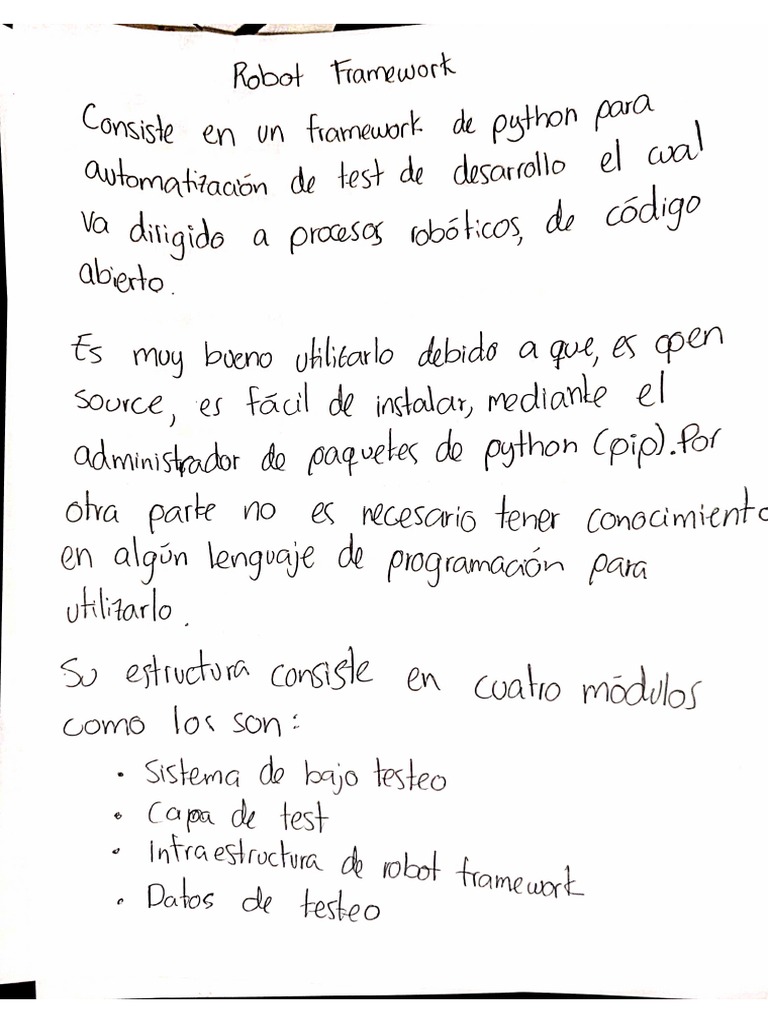 Robot Framework
Consiste en un framework de python para
automatización de test de desarrollo el cual
va dirigido a procesos robóticos, de código
abierto.
Es muy bueno utilizarlo debido a que, es open
source, es fácil de instalar, mediante el
administrador de paquetes de python (pip). Por
otra parte no es necesario tener conocimiento
en algún lenguaje de programación para
utilizarlo.
Su estructura consiste en cuatro módulos
como los son:
• Sistema de bajo testeo
• Capa de test
• Infraestructura de robot framework
• Datos de testeo